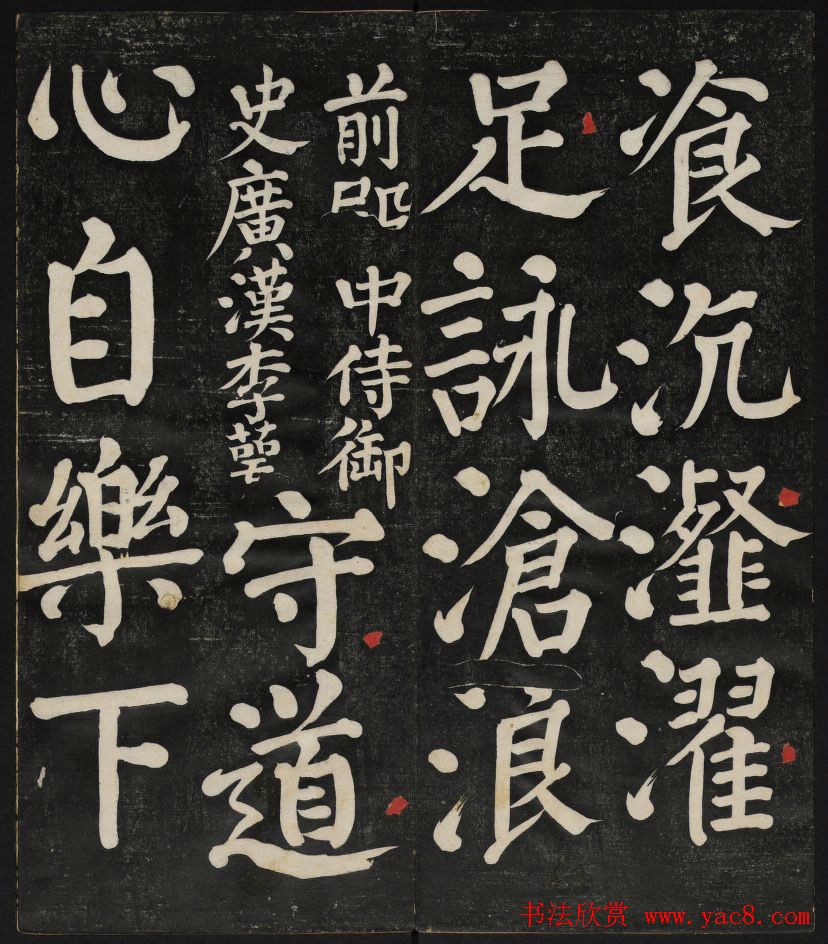 飡沆瀣濯
足詠滄浪
前
中侍御
史廣漢李萼
守道
心自樂下
书法欣赏 www.yac8.com